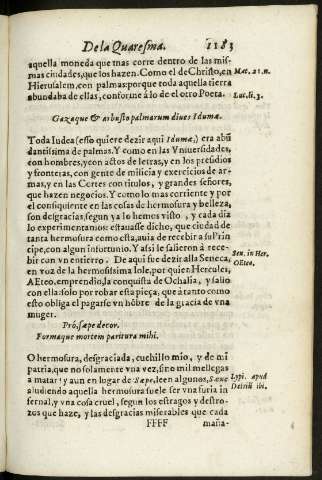 De la Quaresma. 1183
aquella moneda que mas corre dentro de las mis-
mas ciudades, que los hazen. Como el de Christo, en
Mat. 21. n.
Hierusalem, con palmas: porque toda aquella tierra
abundaba de ellas, conforme à lo de el otro Poeta.
Luc. li. 3.
Gazaque & arbusto palmarum diues Idumæ.
Toda Iudea (esso quiere dezir aqui Idumæ) era abũ
dantissima de palmas. Y como en las Vniuersidades,
con hombres, y con actos de letras, y en los presidios
y fronteras, con gente de milicia y exercicios de ar-
mas, y en las Cortes con titulos, y grandes señores,
que hazen negocios. Y como lo mas corriente y por
el consiguiente en las cosas de hermosura y belleza,
son desgracias, segun ya lo hemos visto, y cada dia
lo experimentamos: estauasse dicho, que ciudad de
tanta hermosura como esta, auia de recebir a su Prin
cipe, con algun infortunio. Y assi le salieron à rece-
bir con vn entierro. De aqui fue dezir alla Seneca,
Sen. in Her.
OEteo.
en voz de la hermosissima Iole, por quien Hercules,
AEteo, emprendio, la conquista de Ochalia, y salio
con ella: solo por robar esta pieça, que a tanto como
esto obliga el pagarse vn hõbre de la gracia de vna
muger.
Pró, sæpe decor.
Formaque mortem paritura mihi.
O hermosura, desgraciada, cuchillo mio, y de mi
patria, que no solamente vna vez, sino mil me llegas
a matar! y aun en lugar de Sæpe, leen algunos, Sæue
Lypi. apud
aludiendo aquella hermosura suele ser vna furia in
Delrili ibi.
fernal, y vna cosa cruel, segun los estragos y destro-
zos que haze, y las desgracias miserables que cada
FFFF maña-